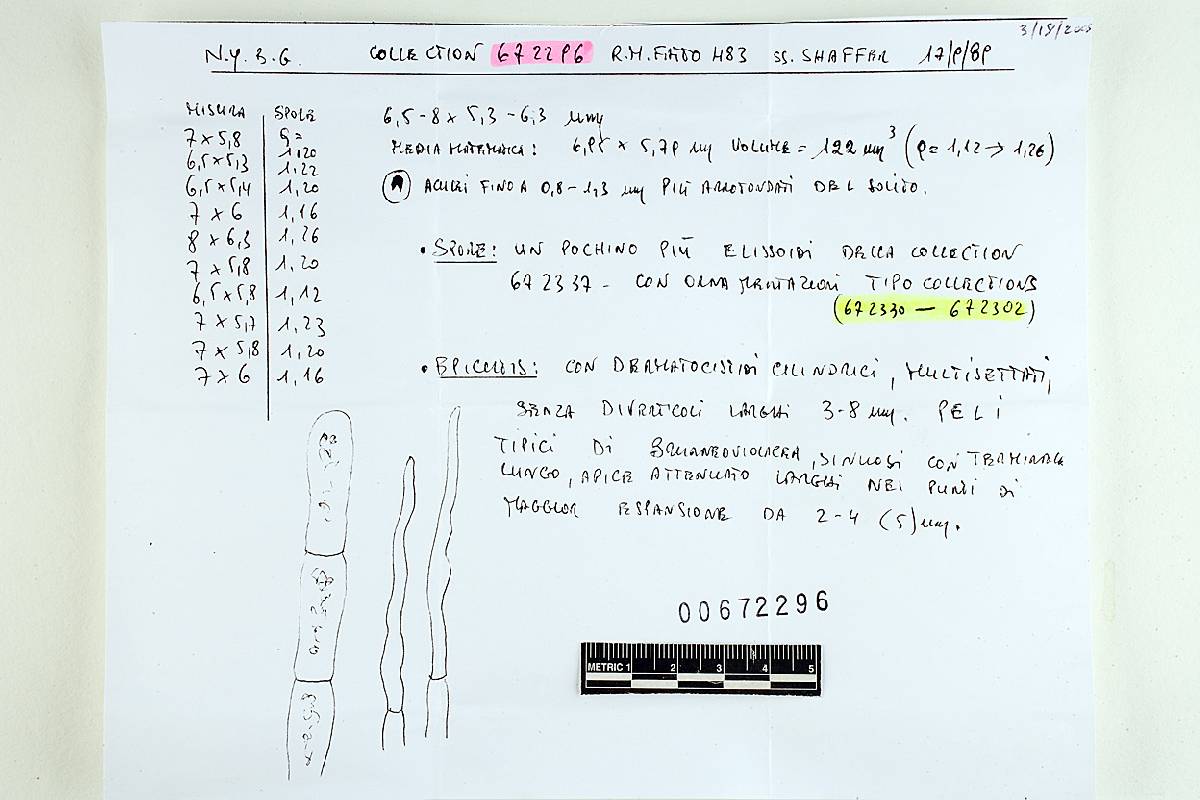 3/18/2005
N.Y.B.G. COLLECTION 672296 R.M. FATTO 483 SS. SHAFFER 17/9/89
MISURA SPORE
7 x 5,8 Q= 1,20
6,5 x 5,3 1,22
6,5 x 5,4 1,20
7 x 6 1,16
8 x 6,3 1,26
7 x 5,8 1,20
6,5 x 5,8 1,12
7 x 5,7 1,23
7 x 5,8 1,20
7 x 6 1,16
6,5 - 8 x 5,3 - 6,3 µm
MEDIA MATEMATICA: 6,95 x 5,79 µm VOLUME = 122 µm³ (Q = 1,12 → 1,26)
(A) ACULEI FINO A 0,8 - 1,3 µm PIÙ ARROTONDATI DEL SOLITO.
• SPORE: UN POCHINO PIÙ ELISSOIDI DELLA COLLECTION
672337 - CON ORNAMENTAZIONI TIPO COLLECTIONS
(672330 — 672302)
• EPICUTIS: CON DERMATOCISTIDI CILINDRICI, MULTISETTATI,
SENZA DIVERTICOLI LARGHI 3-8 µm. PELI
TIPICI DI BRUNNEOVIOLACEA, SINUOSI CON TERMINALE
LUNGO, APICE ATTENUATO LARGHI NEI PUNTI DI
MAGGIOR ESPANSIONE DA 2-4 (5) µm.
00672296
METRIC 1 2 3 4 5